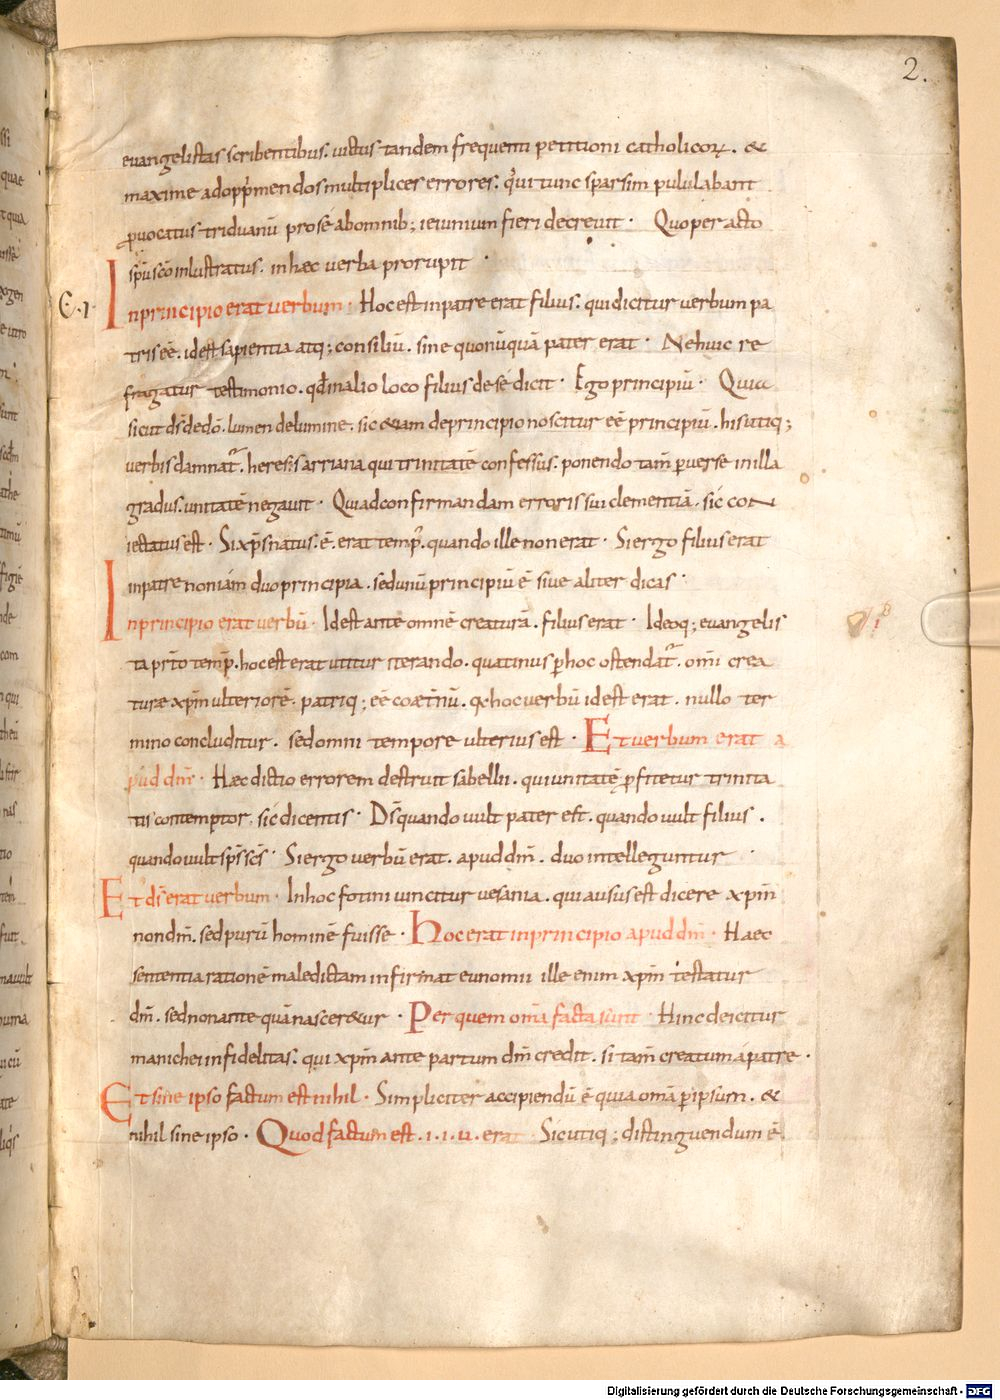 2.
evangelistas scribentibus. victus tandem frequenti petitioni catholicoꝝ. &
maxime ad opp̄mendos multiplices errores. qui tunc sparsim pululabant
ꝓvocatus triduanū pro se ab omnib; ieiunium fieri decrevit · Quo peracto
sp̄u sc̄o inlustratus. in hæc verba prorupit ·
C·I· In principio erat verbum · Hoc est in patre erat filius. qui dicitur verbum pa
tris eē. id est sapientia atq; consiliū. sine quo nūquā pater erat · Ne huic re
fragatur testimonio. qđ in alio loco filius de se dicit · Ego principiū · Quia
sicut d̄s de dō. lumen de lumine. sic &iam de principio noscitur eē principiū. his utiq;
verbis damnat᷑. heresis arriana qui trinitatē confessus. ponendo tam̄ ꝑverse in illa
gradus. unitatē negavit · Qui ad confirmandam erroris sui clementiā. sic con
iectatus est · Si xp̄s natus. ē. erat temp᷒. quando ille non erat · Si ergo filius erat
in patre non iam duo principia. sed unū principiū ē sive aliter dicas ·
In principio erat verbū · Id est ante omnē creaturā. filius erat · Ideoq; evangelis
ta p̄rito temp᷒. hoc est erat utitur iterando. quatinus ꝑ hoc ostendat᷑. om̄i crea
turæ xp̄m ulteriorē. patriq; eē coæt̄nū. q& hoc verbū id est erat. nullo ter
mino concluditur. sed omni tempore ulterius est · Et verbum erat a
pud dm̄ · Hæc dictio errorem destruit sabellii. qui unitatē ꝓfitetur trinita
tis contemptor. sic dicentis · D̄s quando vult pater est. quando vult filius.
quando vult sp̄s sc̄s · Si ergo verbū erat. apud dm̄. duo intelleguntur ·
Et d̄s erat verbum · In hoc fotini vincitur vesania. qui ausus est dicere xp̄m
non dm̄. sed purū hominē fuisse · Hoc erat in principio apud dm̄ · Haec
sententia rationē maledictam infirmat eunomii ille enim xp̄m testatur
dm̄. sed non ante quā nasceretur · Per quem om̄a facta sunt · Hinc deicitur
manichei infidelitas. qui xp̄m ante partum dm̄ credit. si tam̄ creatum a patre ·
Et sine ipso factum est nihil · Simpliciter accipiendū ē quia om̄a ꝑ ipsum. &
nihil sine ipso · Quod factum est. I. I. U. erat · Sic utiq; distinguendum ē
Digitalisierung gefördert durch die Deutsche Forschungsgemeinschaft - DFG